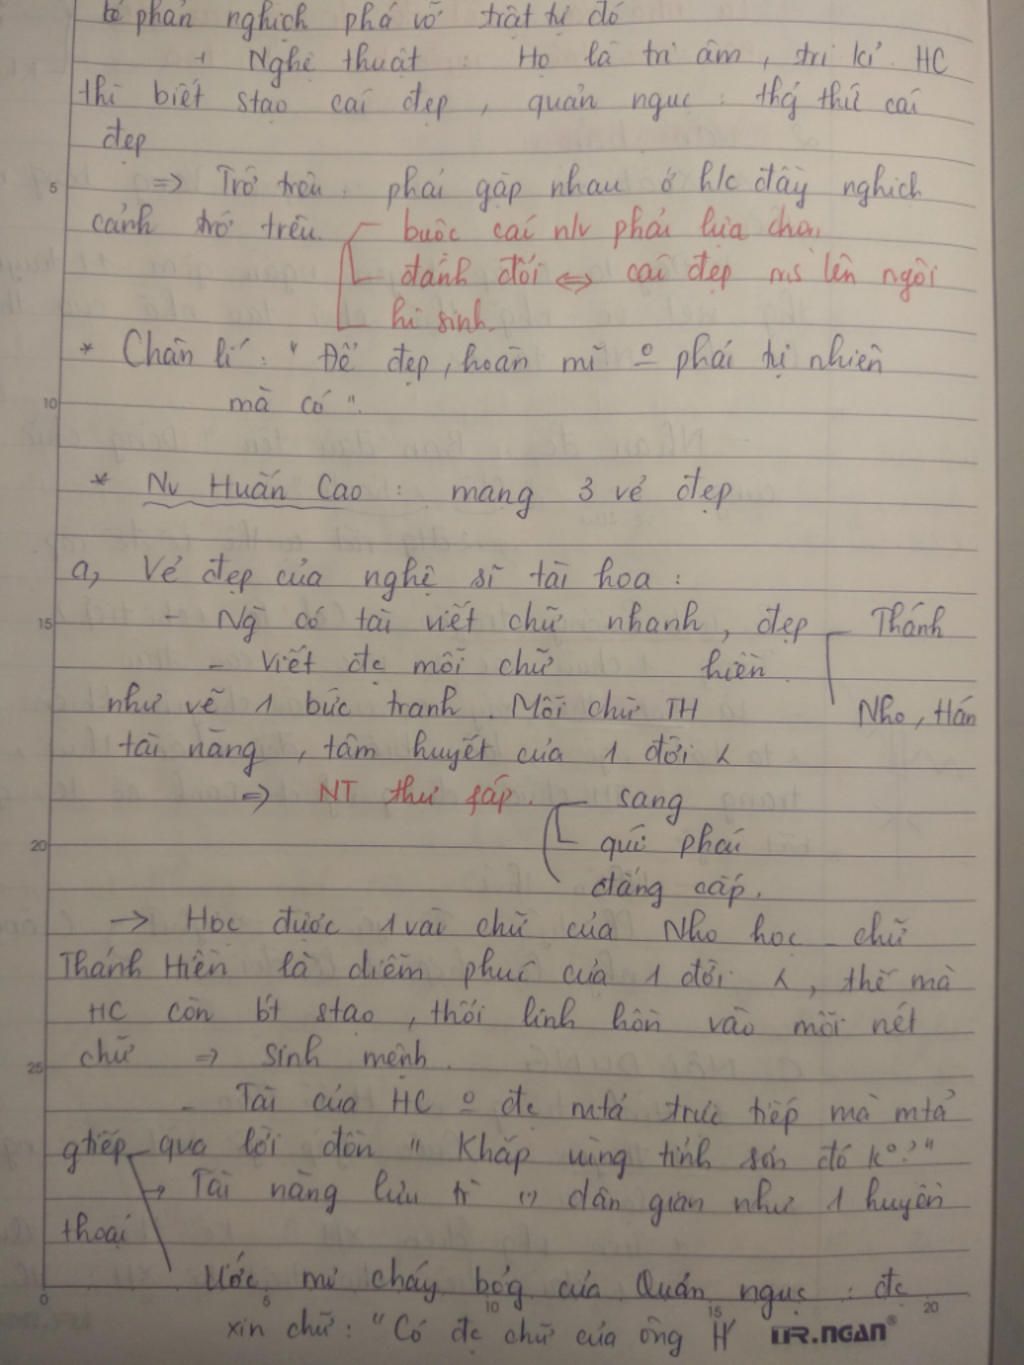 bé phản nghịch phá vỡ trật tự đó
+ Nghệ thuật : Họ là tri âm, tri kỉ. HC
thì biết stạo cái đẹp, quản ngục : thg thức cái
đẹp
=> Trớ trêu : phải gặp nhau ở h/c đầy nghịch
cảnh trớ trêu. buộc cái n/v phải lựa chọn
đánh đổi <=> cái đẹp ms lên ngôi
hi sinh.
* Chân lí : " Để đẹp, hoàn mĩ º phải tự nhiên
mà có ".
* Nv Huấn Cao : mang 3 vẻ đẹp
a, Vẻ đẹp của nghệ sĩ tài hoa :
- Ng có tài viết chữ nhanh, đẹp Thánh
- Viết đc mỗi chữ hiền.
như vẽ 1 bức tranh. Mỗi chữ TH Nho, Hán
tài năng, tâm huyết của 1 đời
=> NT thư pháp. sang
quí phái
đẳng cấp.
-> Học được 1 vài chữ của Nho học - chữ
Thánh Hiền là diễm phúc của 1 đời, thế mà
HC còn bt stạo, thổi linh hồn vào mỗi nét
chữ => sinh mệnh.
- Tài của HC º đc mtả trực tiếp mà mtả
gtiếp qua lời đồn " Khắp vùng tỉnh sơn đó kº?"
Tài năng lưu trì dân gian như 1 huyền
thoại
Ước mơ cháy bỏg của Quản ngục : đc
xin chữ : "Có đc chữ của ông H
DR.NGAN®
5
10
15
20
25
0
5
10
15
20